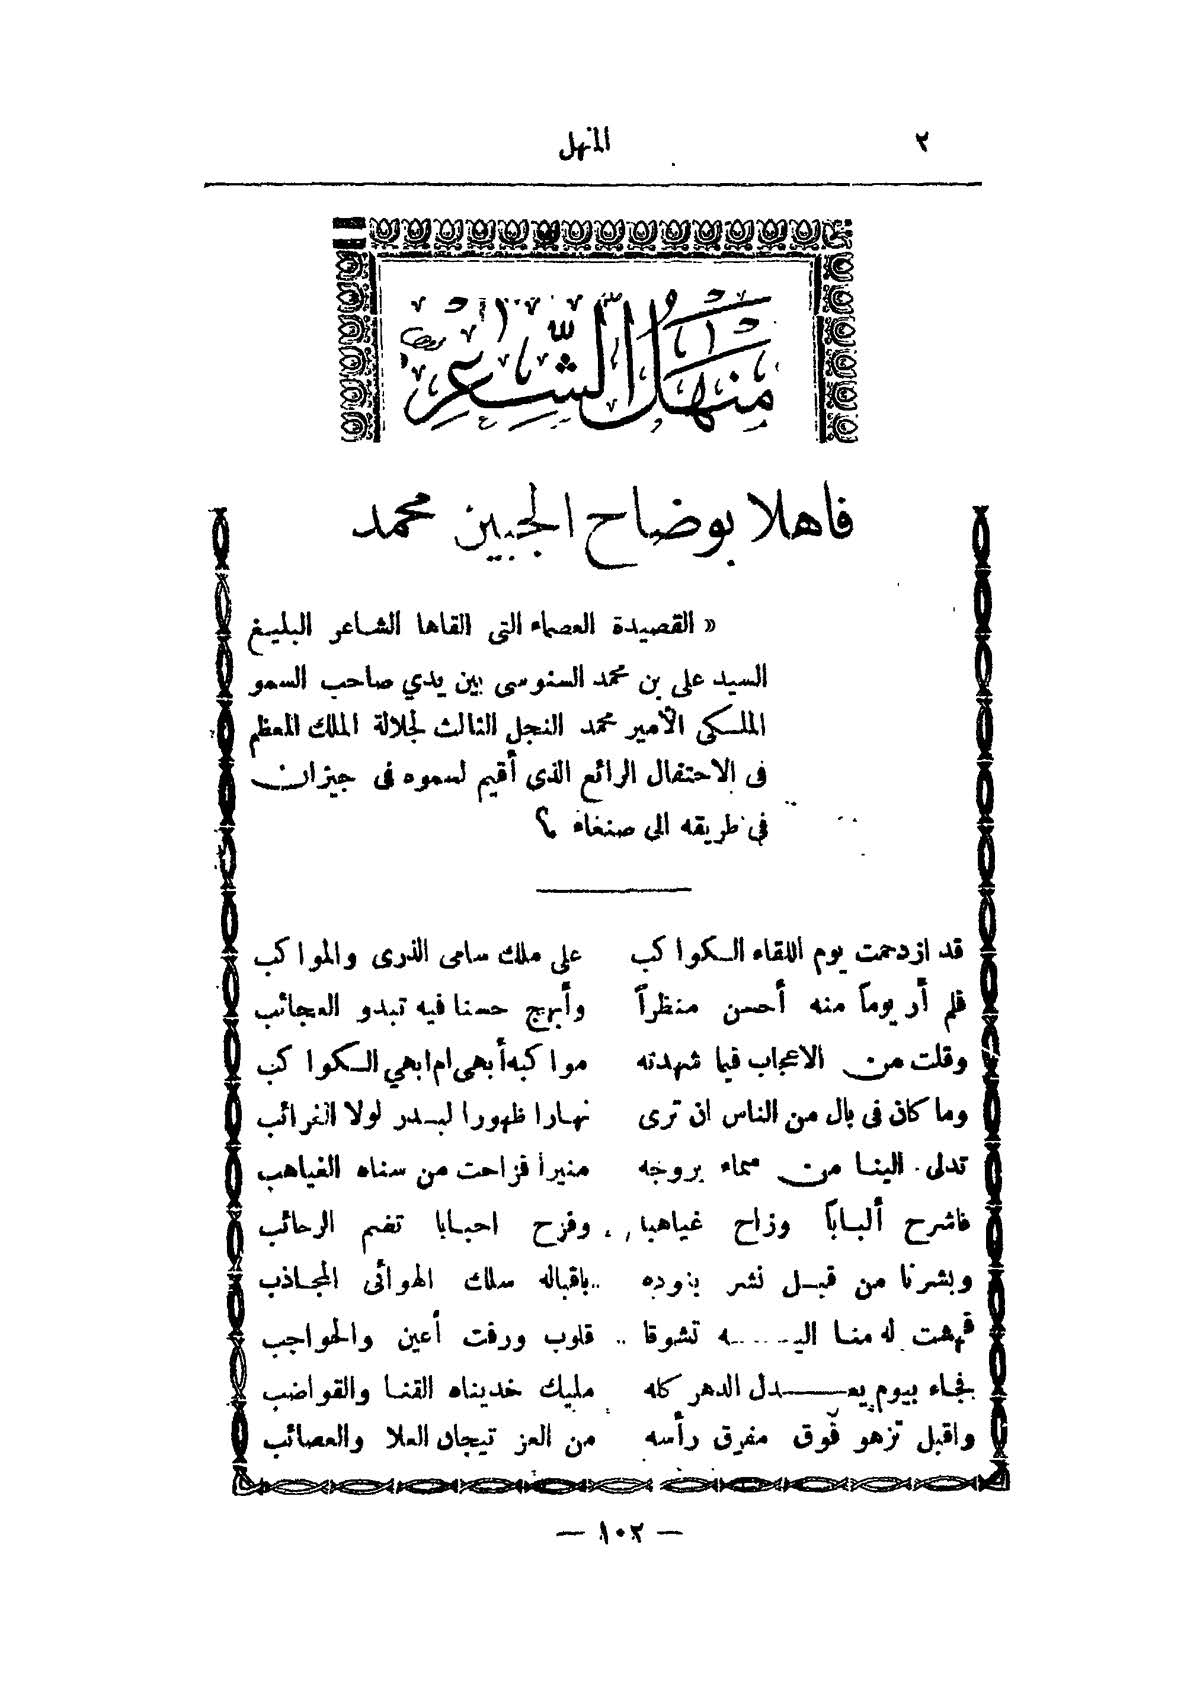 ٢ المنهل
منهل الشاعر
فاهلا بوضاح الجبين محمد
« القصيدة العصماء التى القاها الشاعر البليغ
السيد على بن محمد السنوسى بين يدي صاحب السمو
الملكى الأمير محمد النجل الثالث لجلالة الملك المعظم
فى الاحتفال الرائع الذى أقيم لسموه فى جيزان
فى طريقه الى صنعاء
قد ازدحمت يوم اللقاء الكواكب على ملك سامى الذرى والمواكب
فلم أر يوماً منه أحسن منظراً وأبهج حسنا فيه تبدو العجائب
وقلت من الاعجاب فيما شهدته مواكبه أبهى ام ابهي الكواكب
وما كان فى بال من الناس ان ترى نهارا ظهورا لبدر لولا الغرائب
تدلى الينا من سماء بروجه منيراً فزاحت من سناه الغياهب
فاشرح ألباباً وزاح غياهبا وفزح احبابا تضم الرحائب
وبشرنا من قبل نشر بنوده باقباله سلك الهوائى المجاذب
فهشت له منا اليه تشوقا قلوب ورفت أعين والحواجب
فجاء بيوم يعدل الدهر كله مليك خديناه القنا والقواضب
واقبل تزهو فوق مفرق رأسه من العز تيجان العلا والعصائب
— ١٠٢ —